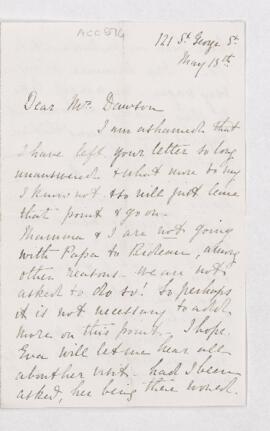 ACC 876
121 St. George St.
May 13th
Dear Mrs. Dawson
I am ashamed that
I have left your letter so long
unanswered & what more to say
I know not & so will just leave
that point & go on -
Mamma & I are not going
with Papa to Rideau, among
other reasons - we are not
asked to do so! So perhaps
it is not necessary to add
more on this point - I hope
Eva will let me hear all
about her visit - had I been
asked, her being there would